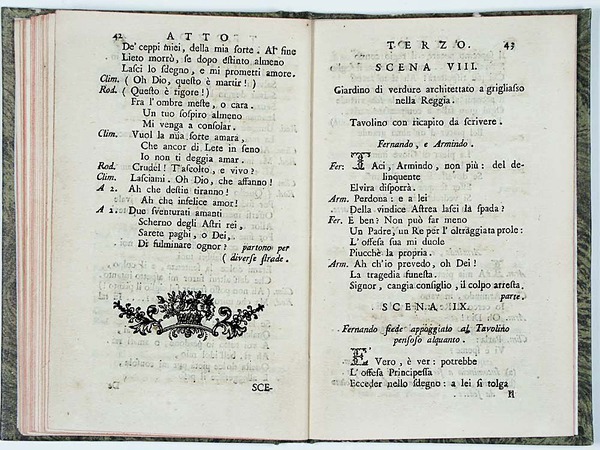 42 ATTO
De' ceppi miei, della mia sorte. Al fine
Lieto morrò, se dopo estinto almeno
Lasci lo sdegno, e mi prometti amore.
Clim. ( Oh Dio, questo è martir! )
Rod. ( Questo è rigore! )
Fra l'ombre meste, o cara.
Un tuo sospiro almeno
Mi venga a consolar.
Clim. Vuol la mia sorte amara,
Che ancor di Lete in seno
Io non ti deggia amar.
Rod. Crudel! T'ascolto, e vivo?
Clim. Lasciami. Oh Dio, che affanno!
A 2. Ah che destin tiranno!
Ah che infelice amor!
A 2. Due sventurati amanti
Scherno degli Astri rei,
Sarete paghi, o Dei,
Di fulminare ognor? partono per
( diverse strade.
SCE-
TERZO. 43
SCENA VIII.
Giardino di verdure architettato a grigliasso
nella Reggia.
Tavolino con ricapito da scrivere.
Fernando, e Armindo.
Fer: TAci, Armindo, non più: del de-
linquente
Elvira disporrà.
Arm. Perdona: e a lei
Della vindice Astrea lasci la spada?
Fer. E ben? Non può far meno
Un Padre, un Re per l'oltraggiata prole:
L'offesa sua mi duole
Piucchè la propria.
Arm. Ah ch'io prevedo, oh Dei!
La tragedia funesta.
Signor, cangia consiglio, il colpo arresta.
parte.
SCENA IX.
Fernando siede appoggiato al Tavolino
pensoso alquanto.
E' Vero, è ver: potrebbe
L'offesa Principessa
Ecceder nello sdegno: a lei si tolga